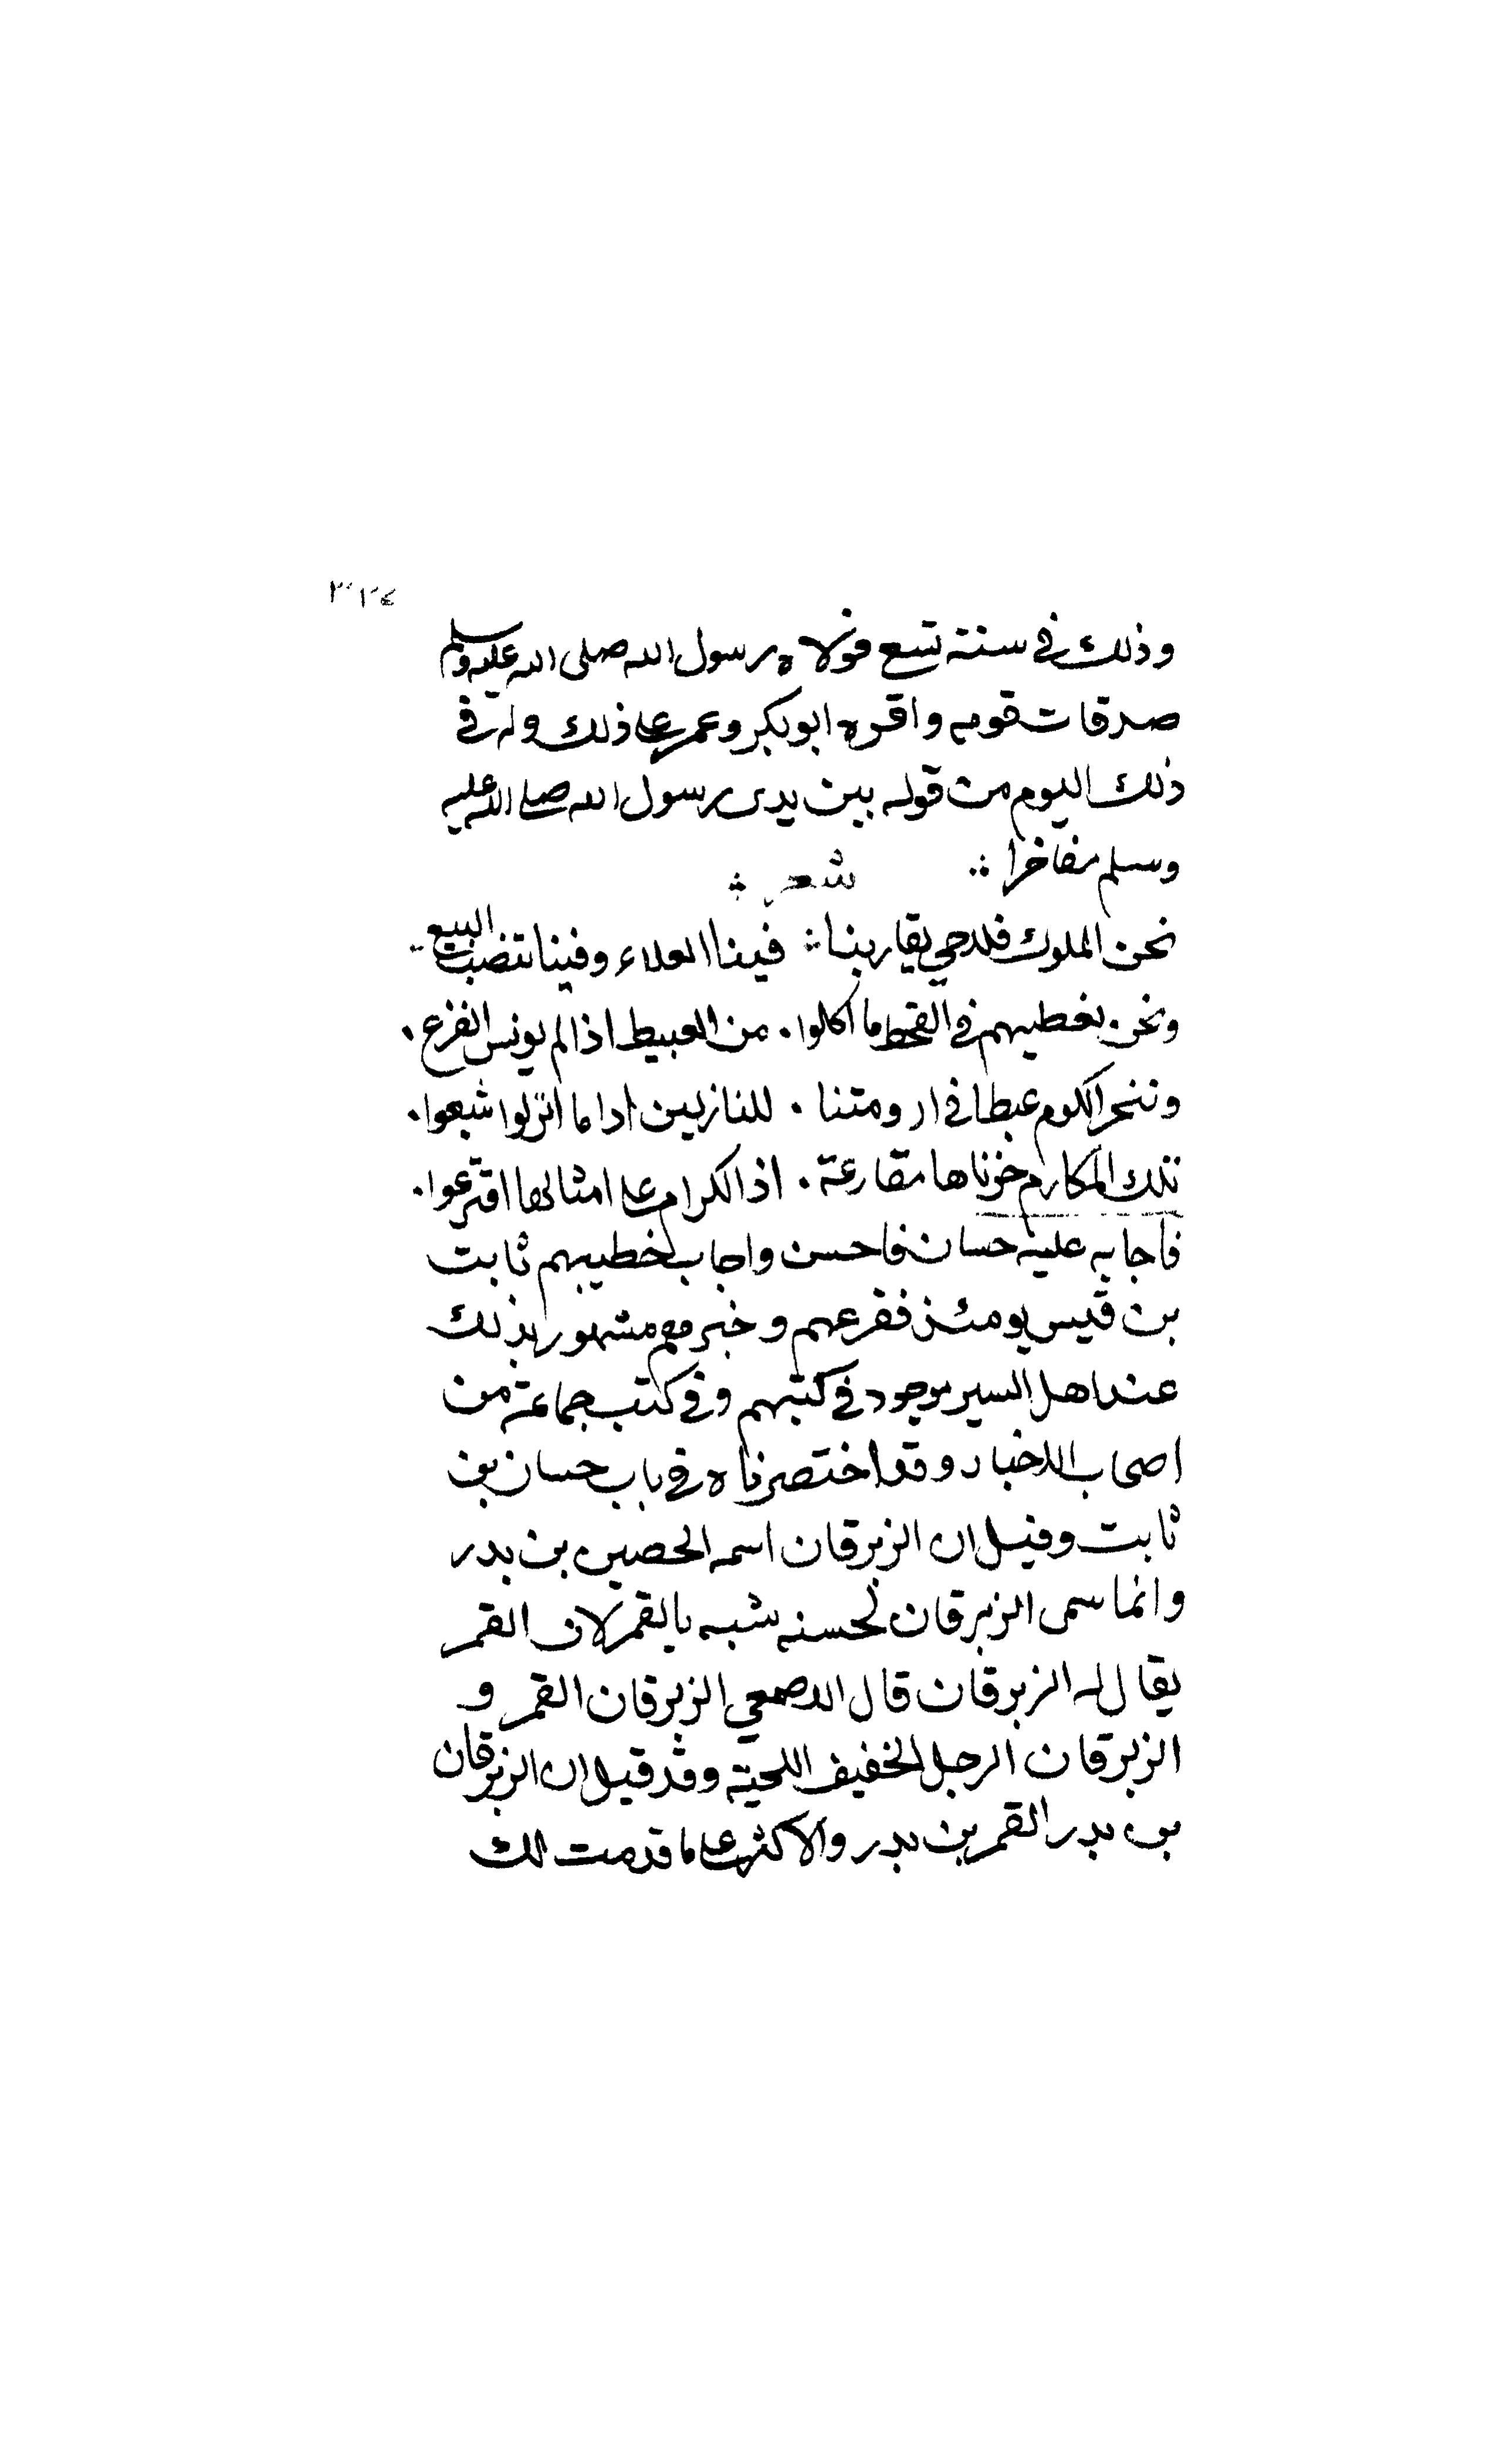 وذلك في سنة تسع فولاه رسول الله صلى الله عليه وسلم
صدقات قومه واقره ابو بكر وعمر على ذلك وله في
ذلك اليوم من قوله بين يدى رسول الله صلى الله عليه
وسلم مفاخرا ∴ شعر ∴
نحن الملوك فلا حي يقاربنا ∴ فينا العلاء وفينا تنضب البيع
ونحن نعطيهم في القحط ما اكلوا . من العبيط اذا لم يونس الفزع .
وننحر الكوم عبطا في ارومتنا . للنازلين اذا ما انزلوا شبعوا .
تلك المكارم حزناها مقارعة . اذا الكرام على امثالها اقترعوا .
فاجابه عليه حسان فاحسن واجاب خطيبهم ثابت
بن قيس يومئذ فقرعهم وخبرهم مشهور بذلك
عند اهل السير موجود في كتبهم وفي كتب جماعة من
اصحاب الاخبار وقد اختصرناه في باب حسان بن
ثابت وقيل ان الزبرقان اسمه الحصين بن بدر
وانما سمى الزبرقان لحسنه شبه بالقمر لان القمر
يقال له الزبرقان قال الاصمعي الزبرقان القمر و
الزبرقان الرجل الخفيف اللحية وقد قيل ان الزبرقان
بن بدر القمر بن بدر والاكثر على ما قدمت لك